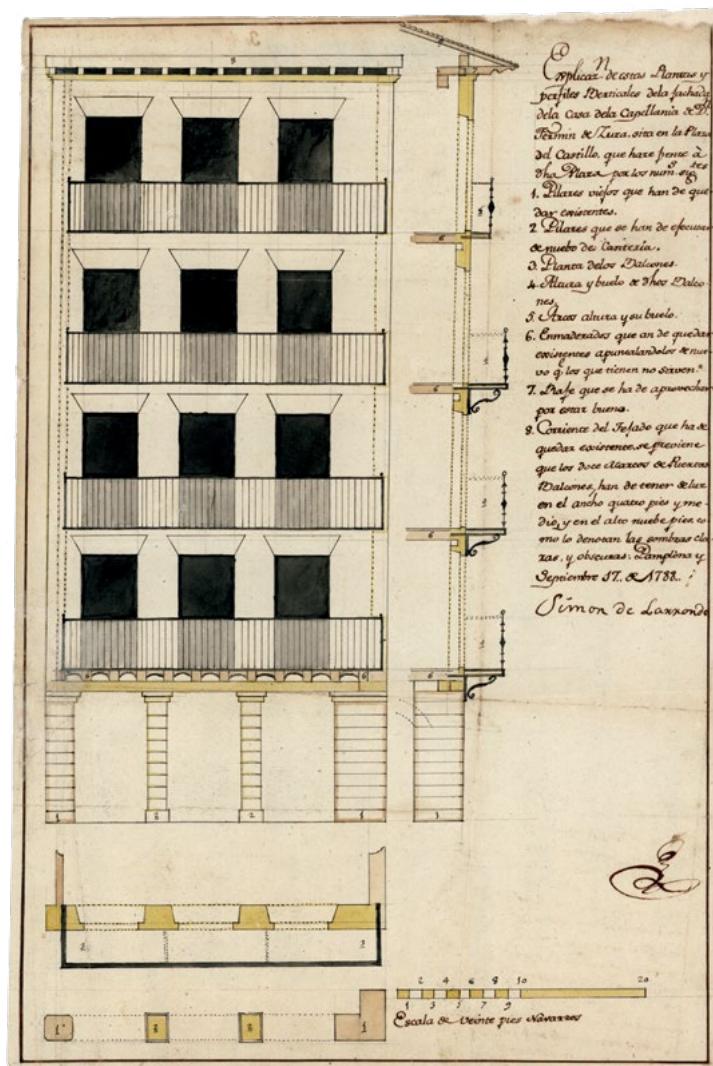 Explicaz.n de estas Plantas y
perfiles Verticales dela fachada
dela Casa dela Capellania de D.n
Fermin de Zura, sita en la Plaza
del Castillo, que hace frente à
dha Plaza por los num.s sig.tes
1. Pilares viejos que han de que
dar existentes.
2 Pilares que se han de efecutar
de nuebo de Canteria.
3. Planta delos Balcones.
4. Altura y buelo de dhos Balco
nes.
5. Arcos altura y su buelo.
6. Enmaderados que an de quedar
existentes apuntalandolos de nue
vo q.e los que tienen no sirven.
7. Rafe que se ha de aprovechar
por estar bueno.
8. Corriente del Tejado que ha de
quedar existente, se previene
que los doce Marcos de Puertas
Balcones, han de tener de luz
en el ancho quatro pies y me-
dio, y en el alto nuebe pies, co
mo lo denotan las sombras cla
ras, y obscuras: Pamplona y
Septiembre 17. de 1788.
Simon de Larrondo
2 4 6 8 10 20
1 3 5 7 9
Escala de Veinte pies Navarros